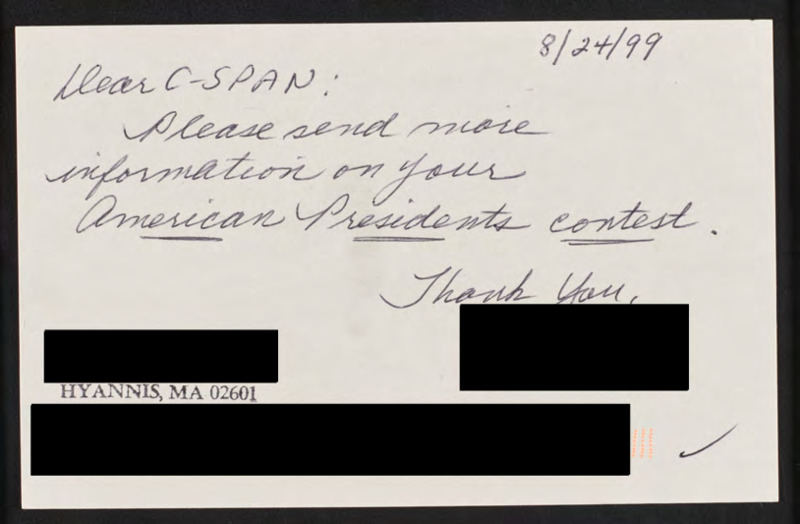 8/24/99
Dear C-SPAN:
Please send more
information on your
American Presidents contest.
Thank You,
HYANNIS, MA 02601